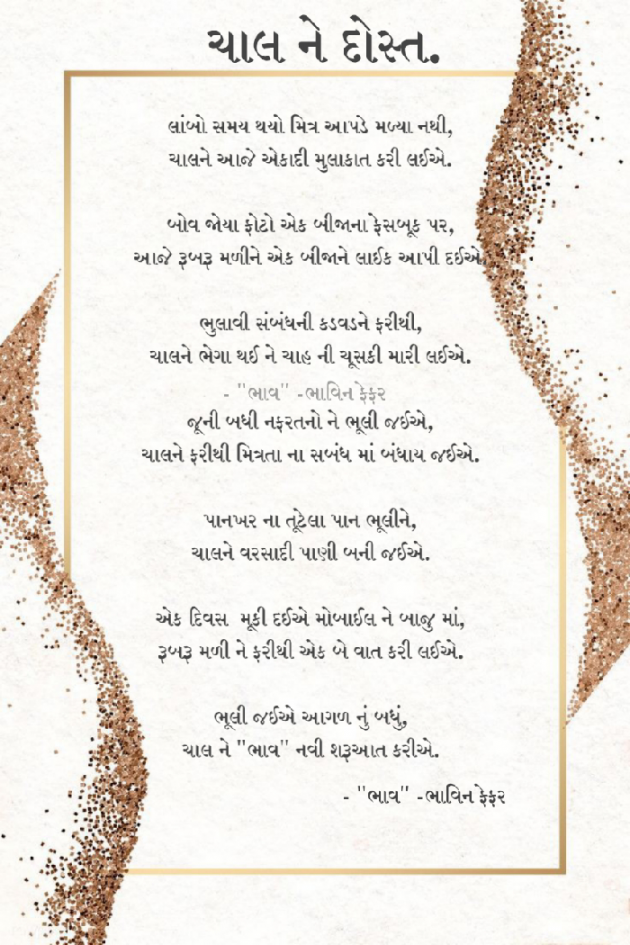 ચાલ ને દોસ્ત.
લાંબો સમય થયો મિત્ર આપડે મળ્યા નથી,
ચાલને આજે એકાદી મુલાકાત કરી લઈએ.
બોવ જોયા ફોટો એક બીજાના ફેસબૂક પર,
આજે રૂબરૂ મળીને એક બીજાને લાઈક આપી દઈએ.
ભુલાવી સંબંધની કડવડને ફરીથી,
ચાલને ભેગા થઈ ને ચાહ ની ચૂસકી મારી લઈએ.
- "ભાવ" -ભાવિન ફેફર
જૂની બધી નફરતનો ને ભૂલી જઈએ,
ચાલને ફરીથી મિત્રતા ના સબંધ માં બંધાય જઈએ.
પાનખર ના તૂટેલા પાન ભૂલીને,
ચાલને વરસાદી પાણી બની જઈએ.
એક દિવસ મૂકી દઈએ મોબાઈલ ને બાજુ માં,
રૂબરૂ મળી ને ફરીથી એક બે વાત કરી લઈએ.
ભૂલી જઈએ આગળ નું બધું,
ચાલ ને "ભાવ" નવી શરૂઆત કરીએ.
- "ભાવ" -ભાવિન ફેફર